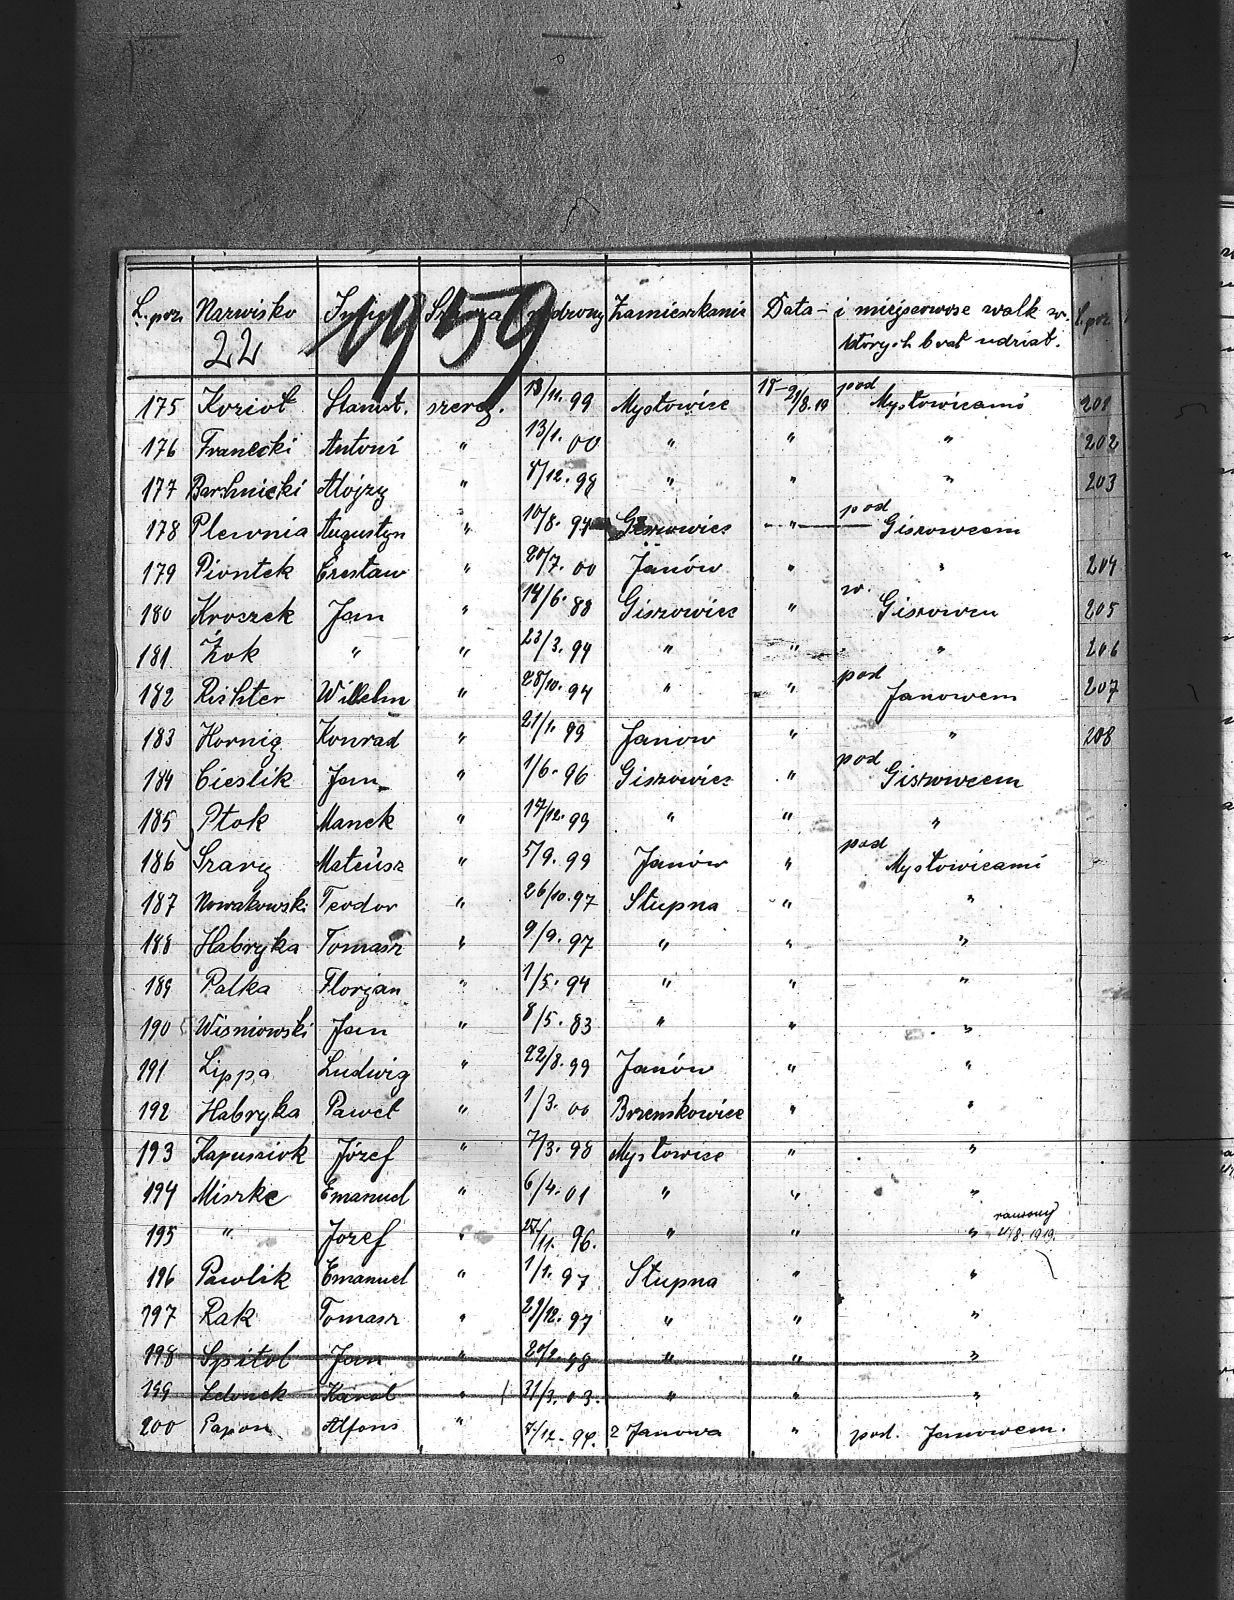 L. porz. Nazwisko Imię Szarża urodzony Zamieszkanie Data - i miejscowosc walk w- L. porz.
22 1959 których brał udział.
175 Kozioł Stanisł. szereg. 13/11. 99 Mysłowice 18-21/8.19 pod Mysłowicami 201
176 Franecki Antoni " 13/1. 00 " " " 202
177 Alojzy " /12. 98 " " " 203
178 Plewnia Augustyn " 10/8. 94 Giszowiec " pod Giszowcem
179 Piontek Czesław " 20/7. 00 Janów " " 204
180 Kroszek Jan " 14/6. 88 Giszowiec " w. Giszowcu 205
181. Żok " " 23/3. 94 " " " 206
182 Richter Wilhelm " 28/10. 94 " " pod Janowem 207
183 Hornig Konrad " 21/1. 99 Janow " " 208
184 Cieslik Jan " 1/6. 96 Giszowiec " pod Giszowcem
185 Ptok Manek " 17/12. 99 " " "
186 Szary Mateusz " 5/9. 99 Janów " pod Mysłowicami
187 Nowakowski Teodor " 26/10. 97 Słupna " "
188 Habryka Tomasz " 9/9. 97 " " "
189 Palka Florjan " 1/5. 94 " " "
190 Wisniowski Jan " 8/5. 83 " " "
191 Lippa Ludwig " 22/8. 99 Janów " "
192 Habryka Paweł " 1/3. 00 Brzenskowice " "
193 Kapusniok Józef " 7/3. 98 Mysłowice " "
194 Miszke Emanuel " 6/4. 01 " " "
195 " Józef " 27/11. 96. " " " 8. 1919.
196 Pawlik Emanuel " 1/1. 97 Słupna " "
197 Rak Tomasz " 29/12. 97 " " "
198 Spitol Jan " 20/2. 98 " " "
199 Ledonek Karol " 31/3. 03. " " "
200 Papon Alfons " /12. 94. z Janowa " pod. Janowem.